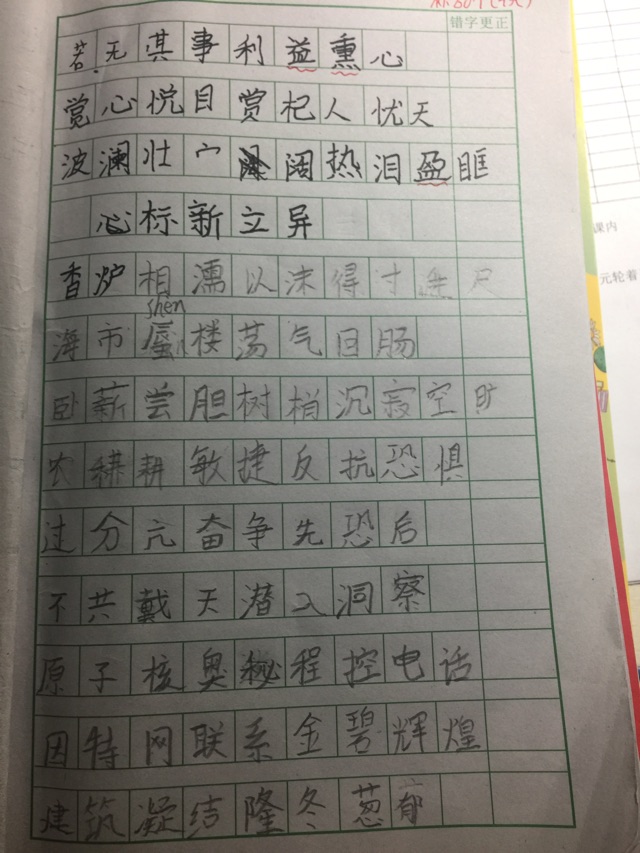 错字更正
若无其事利益熏心
赏心悦目赏杞人忧天
波澜壮宀阔热泪盈眶
心标新立异
香炉相濡以沫得寸进尺
shen
海市蜃楼荡气回肠
卧薪尝胆树梢沉寂空旷
农耕敏捷反抗恐惧
过分亢奋争先恐后
不共戴天潜入洞察
原子核奥秘程控电话
因特网联系金碧辉煌
建筑凝结隆冬葱郁
课内
元轮着